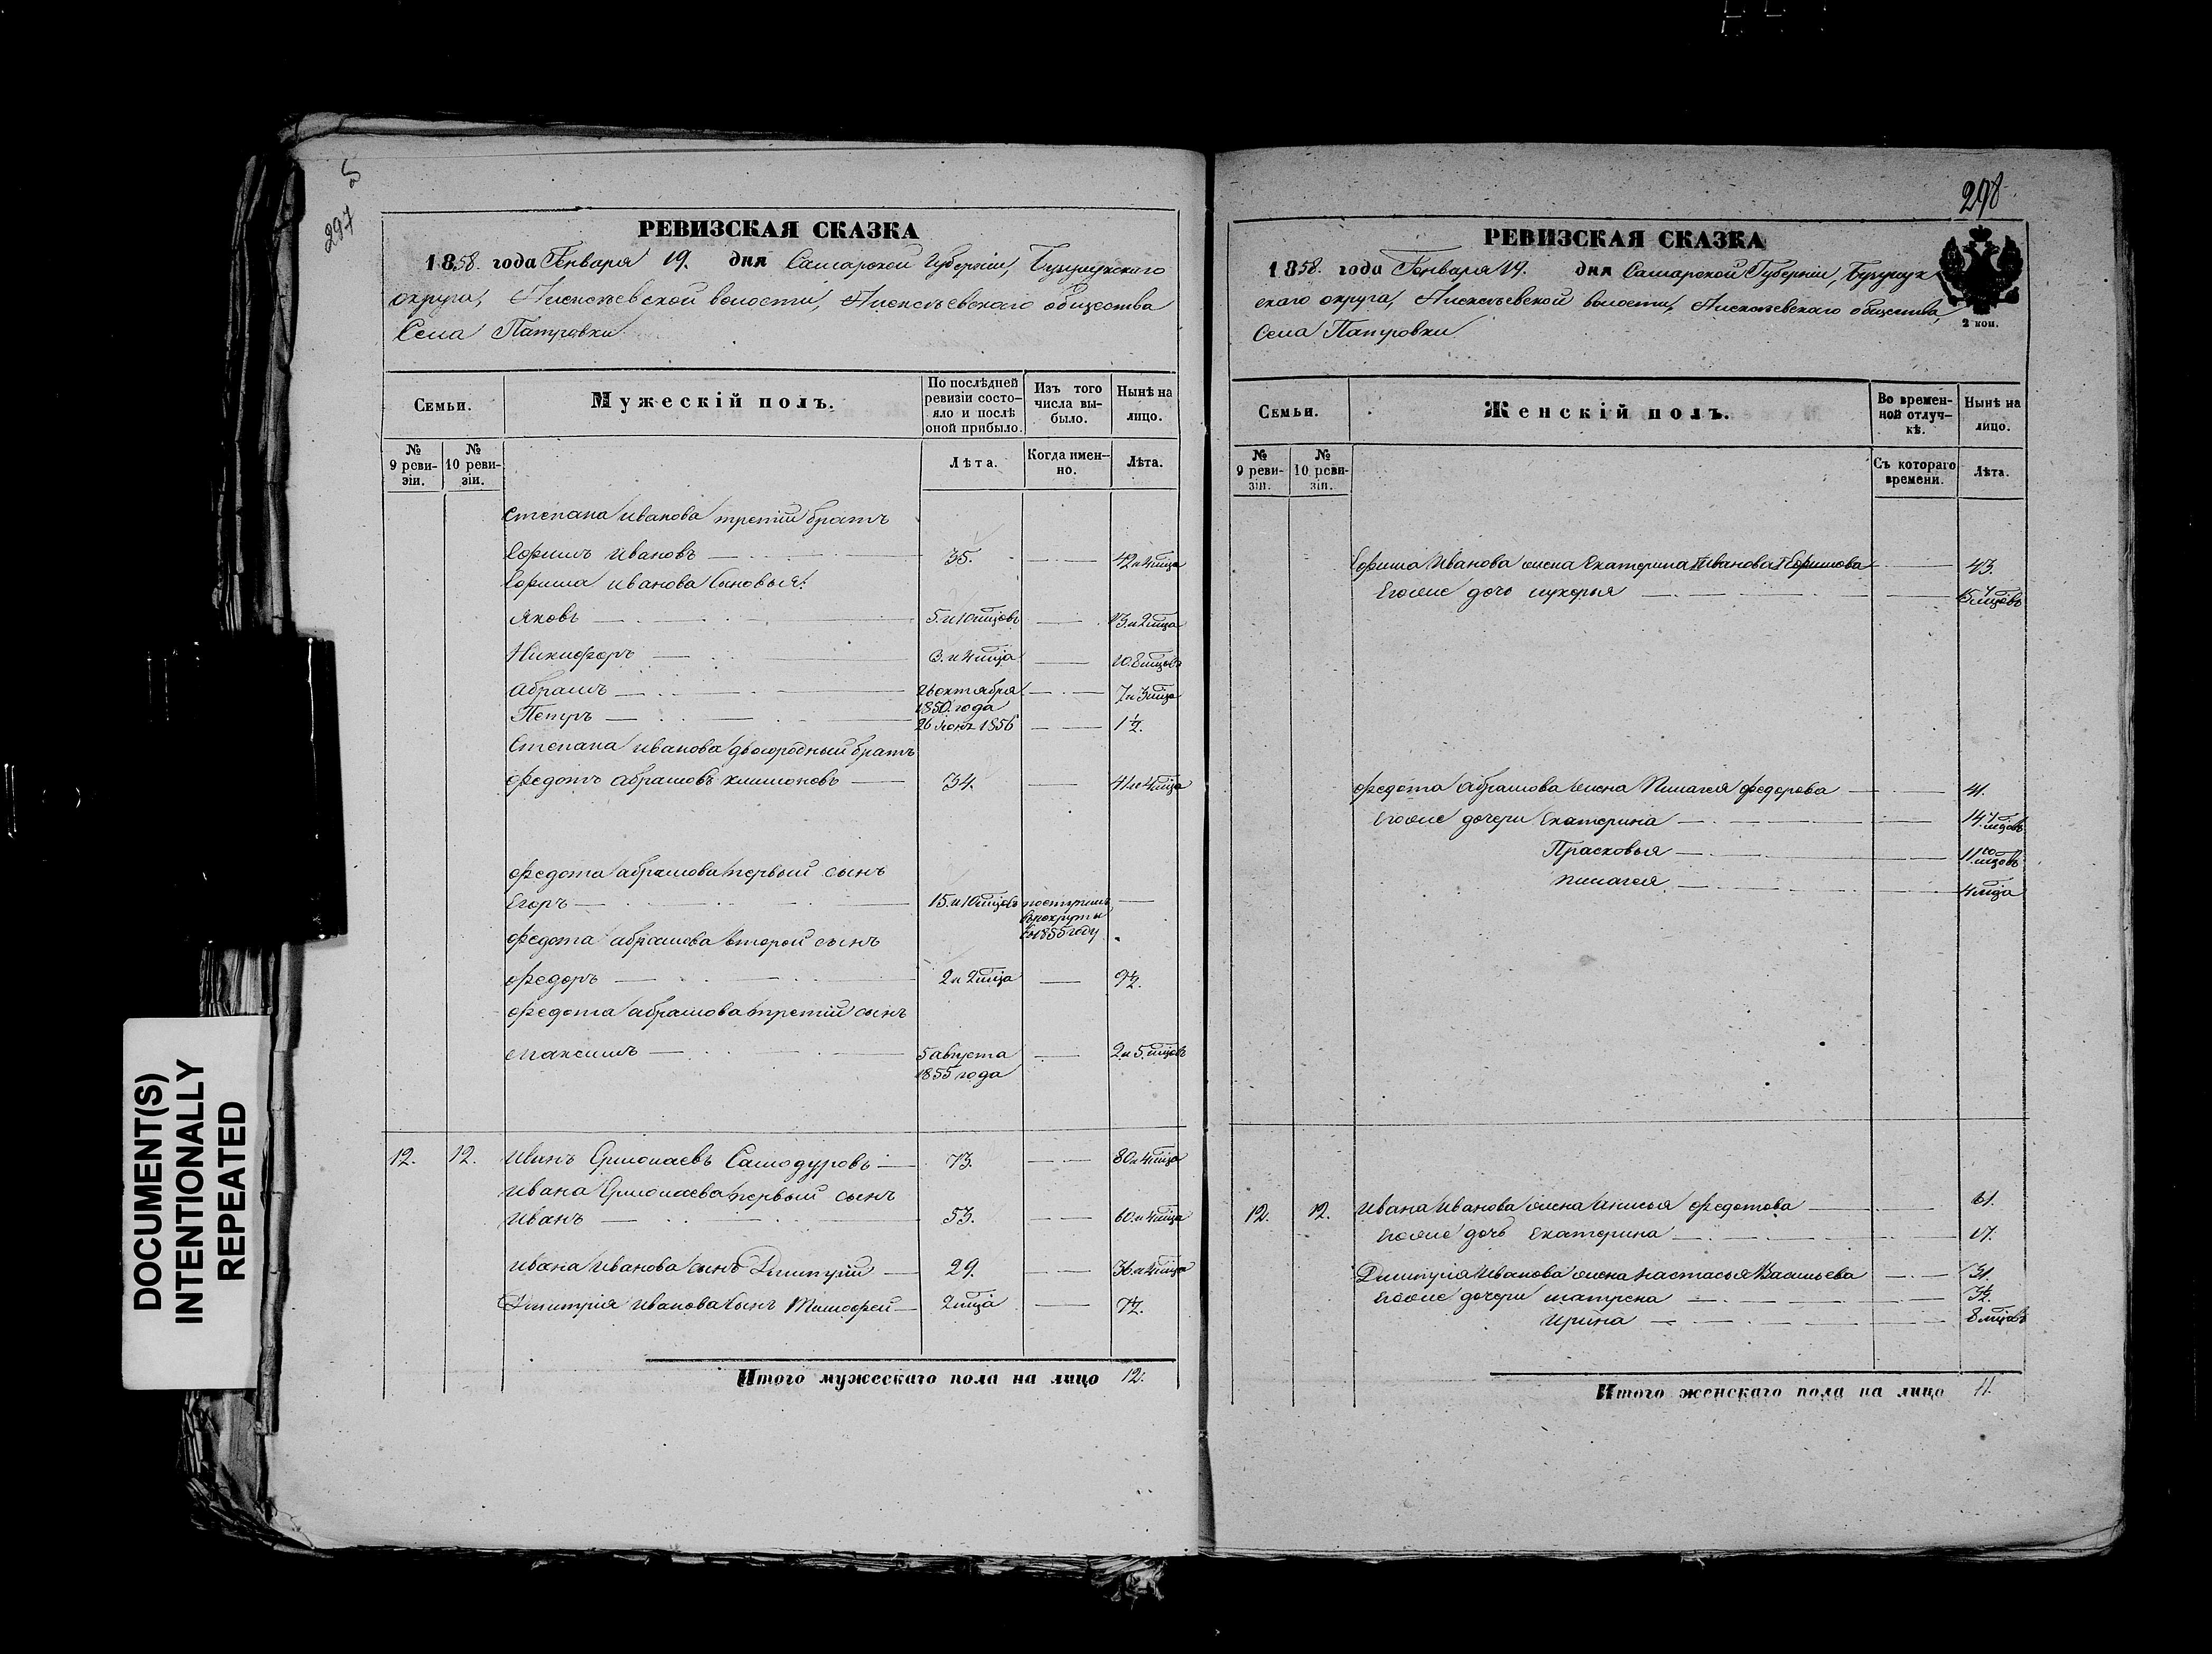 297
РЕВИЗСКАЯ СКАЗКА
1858. года Генваря 19. дня Самарской Губерніи, Бузулукскаго
округа, Алексѣевской волости, Алексѣевскаго общества
Села Патровки
Семьи.
Мужескій полъ.
По послѣдней ревизіи состояло и послѣ оной прибыло.
Изъ того числа выбыло.
Нынѣ на лицо.
№ 9 ревизіи.
№ 10 ревизіи.
Лѣта.
Когда именно.
Лѣта.
Степана Иванова третій братъ
Ефимъ Ивановъ 35. 42 и 4 мца
Ефима Иванова Сыновья:
Яковъ 5. и 10 мцовъ 13. и 2 мца
Никифоръ 3. и 4 мца 10. 8 мцовъ
Абрамъ 26 октября 1850. года 7 и 3 мца
Петръ 26 1856 1 ½.
Степана Иванова двоюродный братъ
Федотъ Абрамовъ 34. 41 и 4 мца
Федота Абрамова первый сынъ
Егоръ 15. и 10 мцовъ поступилъ в рекруты в 1855 году
Федота Абрамова второй сынъ
Федоръ 2 и 2 мца 9 ½.
Федота Абрамова третій сынъ
Максимъ 5 августа 1855 года 2 и 5. мцовъ
12. 12. Иванъ Ермолаевъ Самодуровъ 73. 80 и 4 мца
Ивана Ермолаева первый сынъ
Иванъ 53. 60. и 4 мца
Ивана Иванова сынъ Дмитрій 29. 36. и 4 мца
Дмитрія Иванова Сынъ Тимофей 2 мца 7 ½.
Итого мужескаго пола на лицо 12.
298
РЕВИЗСКАЯ СКАЗКА
2 коп.
1858. года Генваря 19. дня Самарской Губерніи, Бузулук
скаго округа, Алексѣевской волости, Алексѣевскаго общества,
Села Патровки
Семьи.
Женскій полъ.
Во временной отлучкѣ.
Нынѣ на лицо.
№ 9 ревизіи.
№ 10 ревизіи.
Съ котораго времени.
Лѣта.
Ефима Иванова жена Екатерина 43.
Егоже дочь Лукерья
Федота Абрамова жена Пилагея Федорова 41.
Егоже дочери Екатерина
Прасковья
Пилагея 4 мца
12. 12. Ивана Иванова жена Анисья Федотова 61.
Егоже дочь Екатерина 17.
Дмитрія Иванова жена Настасья Васильева 31.
Егоже дочери Матрена 3 ½.
Ирина 8 мцовъ
Итого женскаго пола на лицо 11.
DOCUMENT(S)
INTENTIONALLY
REPEATED